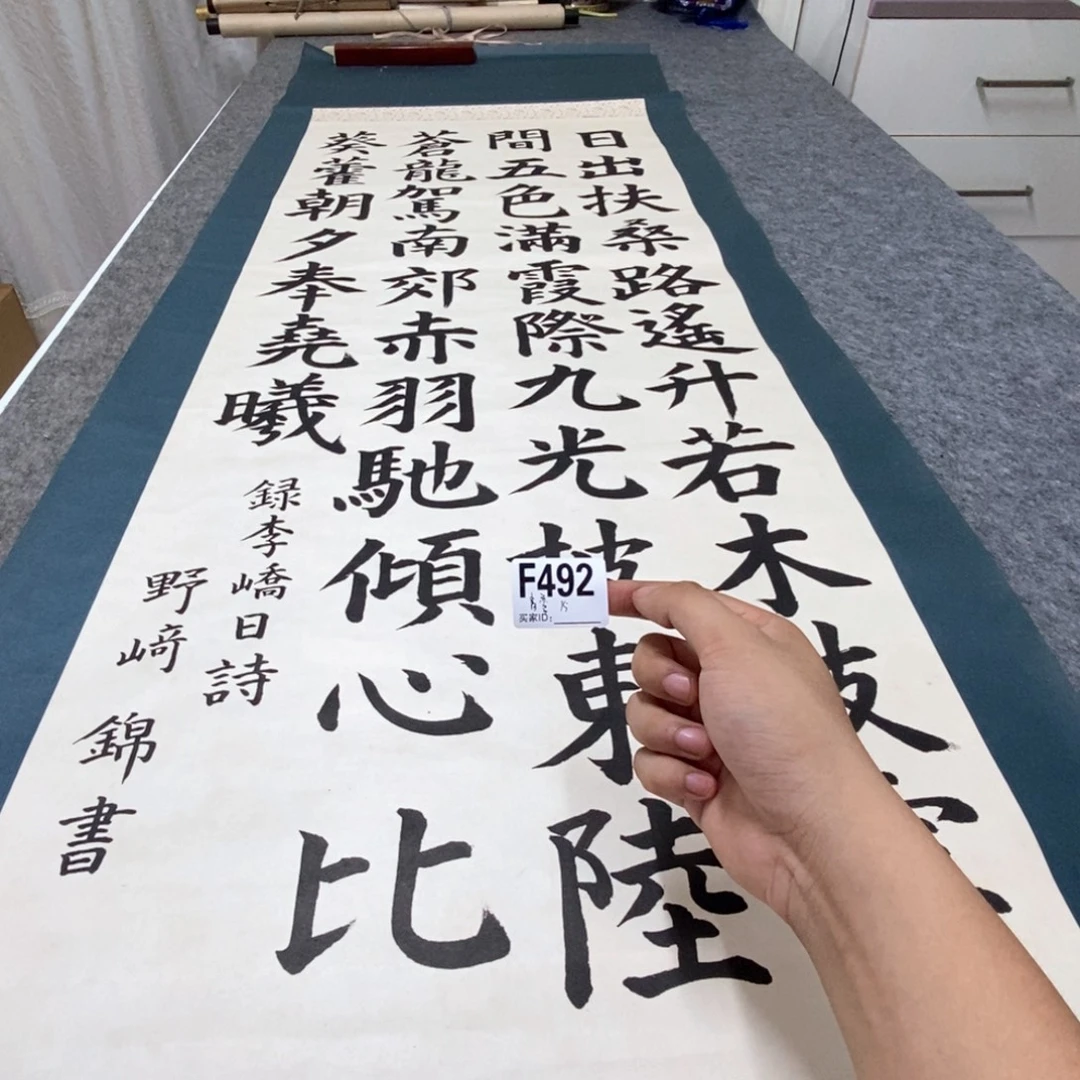 日出扶桑路遙升若木枝
間五色滿霞際九光披東陸
蒼龍駕南郊赤羽馳傾心比
葵藿朝夕奉堯曦
録李嶠日詩
野﨑錦書
F492
买家ID: